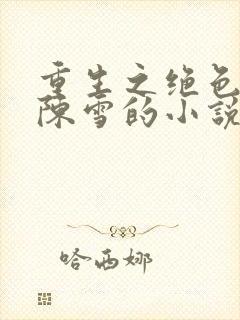 重生之绝色
陈雪的小説
哈西娜